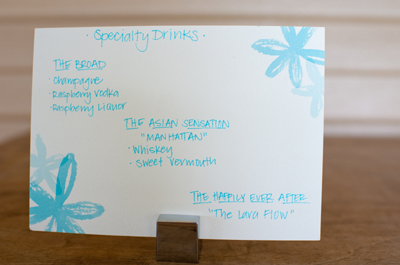 · Specialty Drinks ·
THE BROAD
· Champagne
· Raspberry Vodka
· Raspberry Liquor
THE ASIAN SENSATION
"MANHATTAN"
· Whiskey
· Sweet Vermouth
THE HAPPILY EVER AFTER
"The Lava Flow"